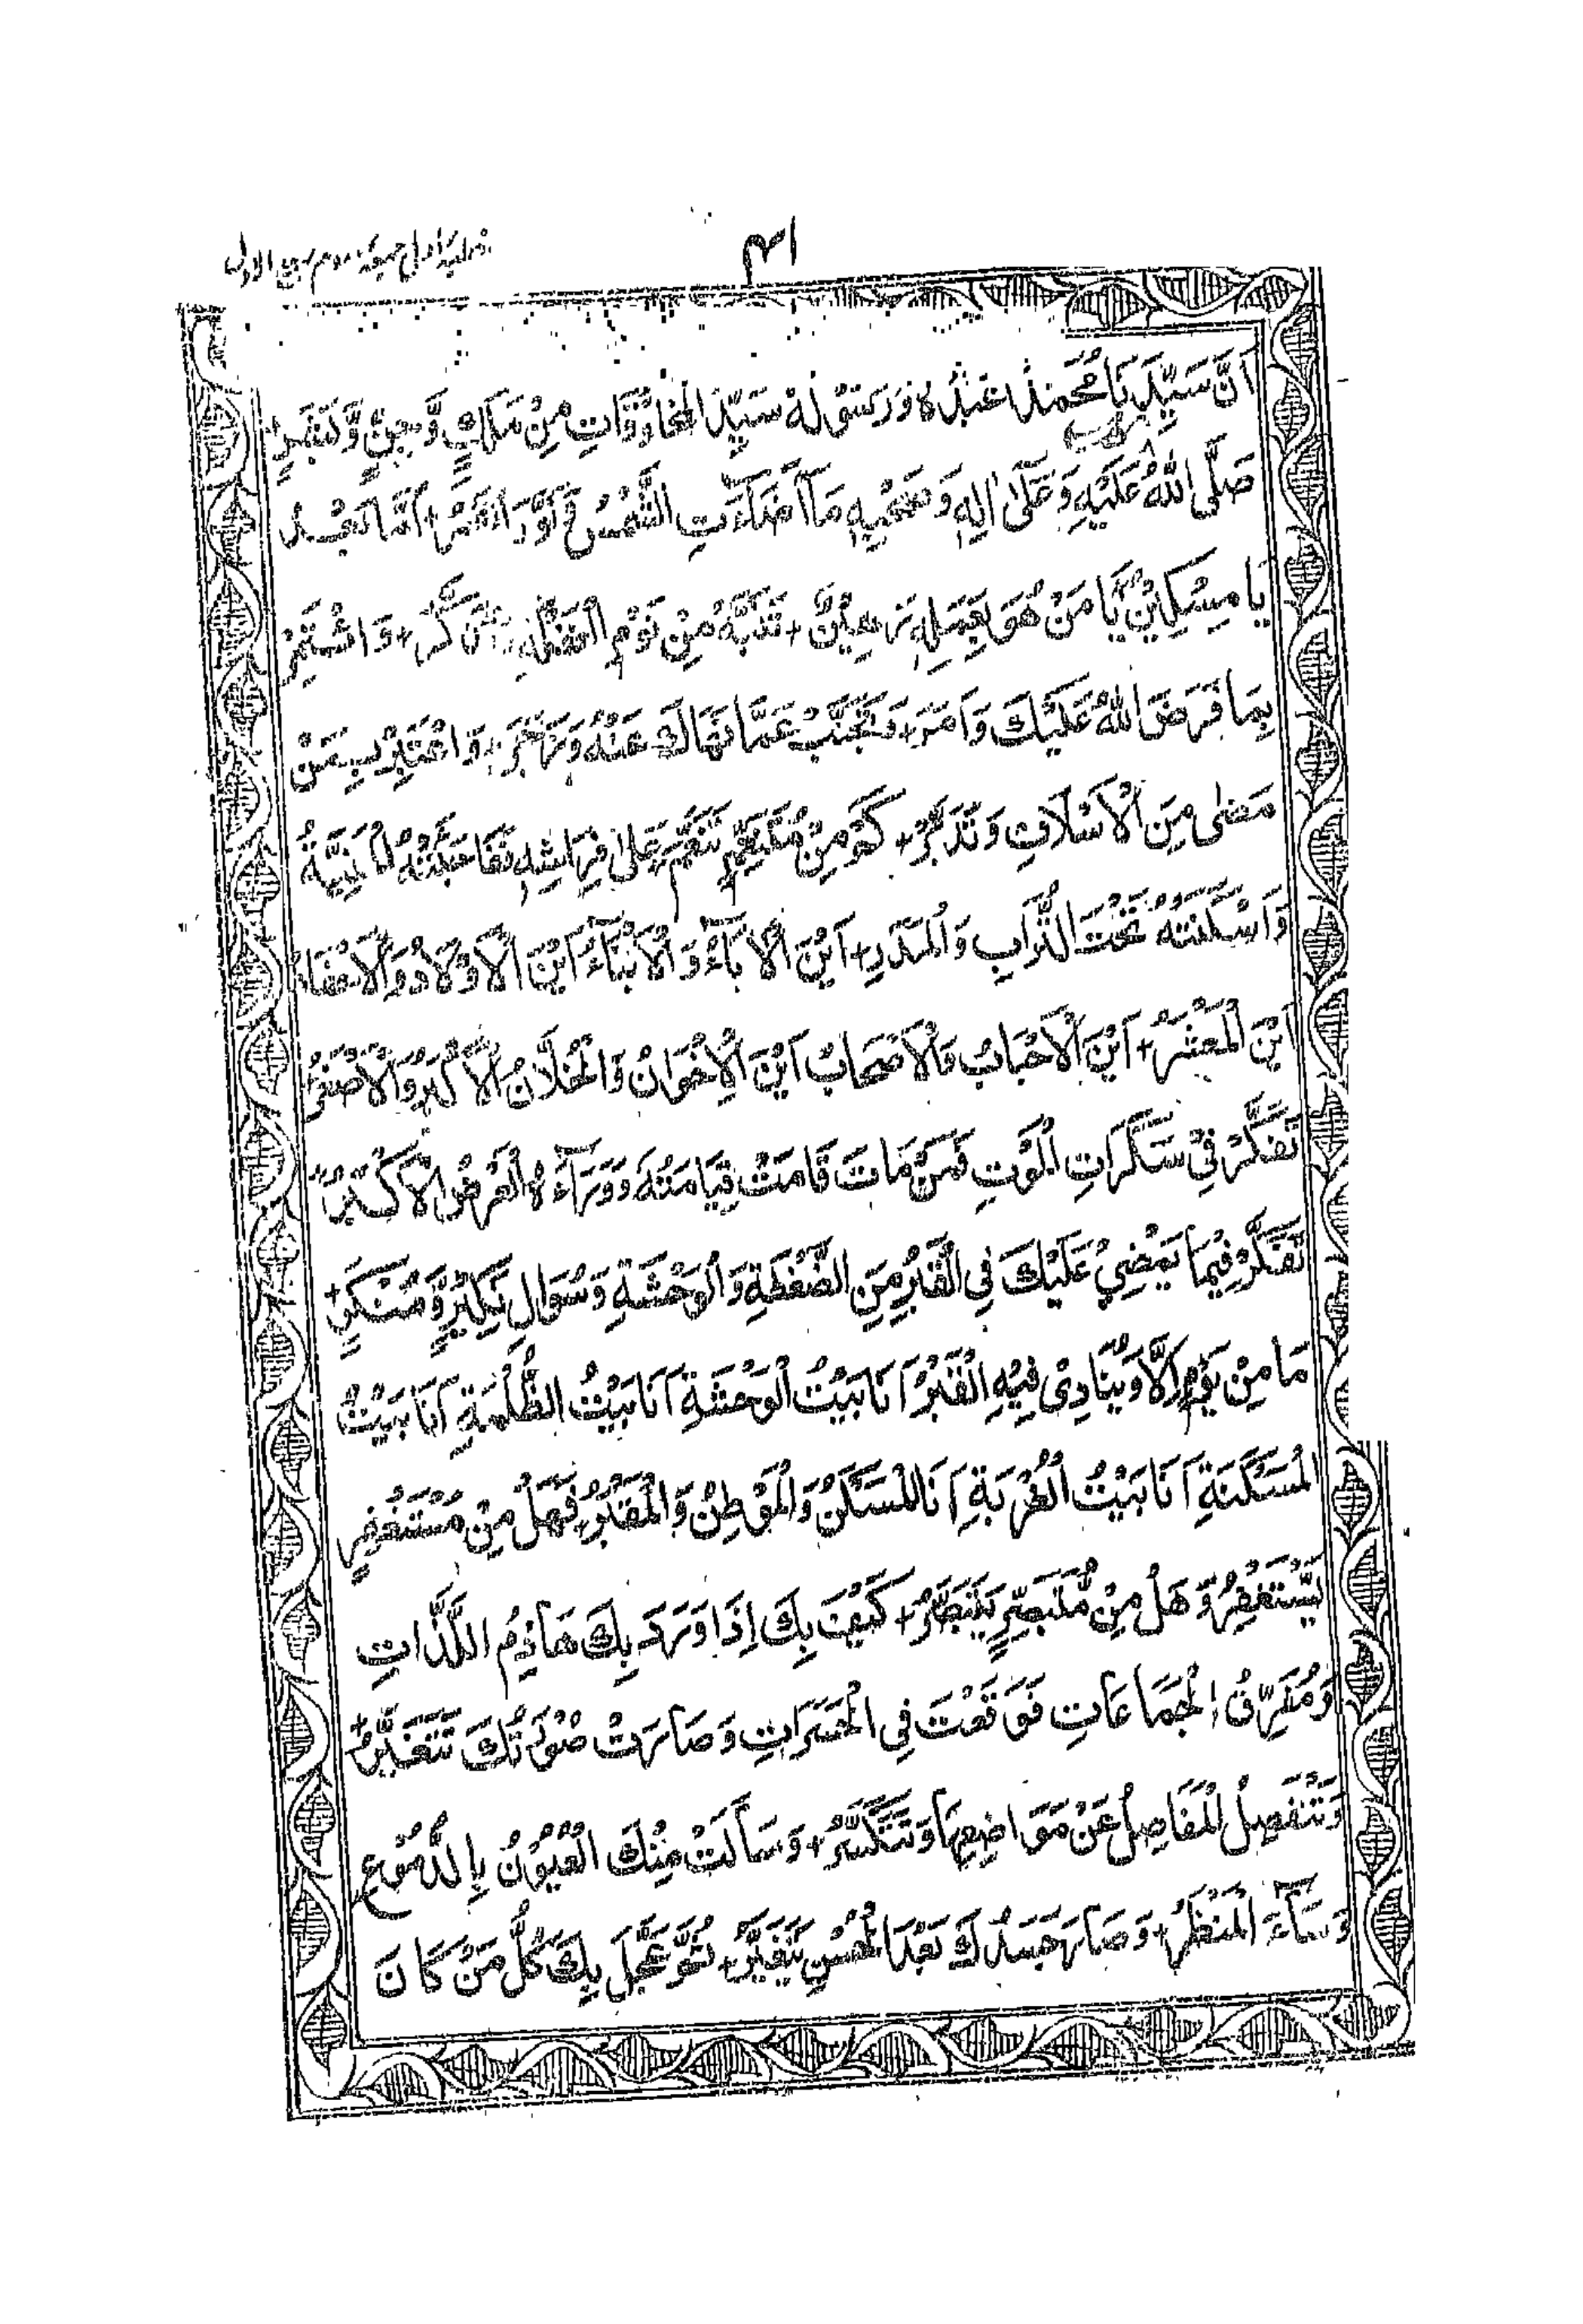 ۳۱
خطبہ اولی جمعہ سوم ربیع الاول
اَنَّ سَيِّدَنَا مُحَمَّدًا عَبْدُهٗ وَرَسُوْلُهٗ سَيِّدُ الْمَخْلُوْقَاتِ مِنْ مَلَكٍ وَّجِنٍّ وَّبَشَرٍ
صَلَّى اللّٰهُ عَلَيْهِ وَعَلٰى اٰلِهٖ وَصَحْبِهٖ مَآ اَضَآءَتِ الشَّمْسُ وَنَوَّرَ الْقَمَرُ + اَمَّا بَعْدُ
يَا مِسْكِيْنُ يَا مَنْ هُوَ بِعَمَلِهٖ رَهِيْنٌ + تَنَبَّهْ مِنْ نَوْمِ الْغَفْلَةِ وَتَذَكَّرْ + وَائْتَمِرْ
بِمَا فَرَضَ اللّٰهُ عَلَيْكَ وَاَمَرَ + وَتَجَنَّبْ عَمَّا نَهَاكَ عَنْهُ وَزَجَرَ + وَاعْتَبِرْ بِمَنْ
مَضٰى مِنَ الْاَسْلَافِ وَتَدَبَّرْ + كَمْ مِنْ مُتَنَعِّمٍ تَنَعَّمَ عَلٰى فِرَاشِهٖ فَفَاجَئَتْهُ الْمَنِيَّةُ
وَاَسْكَنَتْهُ تَحْتَ التُّرَابِ وَالْمَدَرِ + اَيْنَ الْاٰبَآءُ وَالْاَبْنَآءُ اَيْنَ الْاَوْلَادُ وَالْاَحْفَادُ
اَيْنَ الْمَعْشَرُ + اَيْنَ الْاَحْبَابُ وَالْاَصْحَابُ اَيْنَ الْاِخْوَانُ وَالْخُلَّانُ الْاَكْبَرُ وَالْاَصْغَرُ
تَفَكَّرْ فِيْ سَكَرَاتِ الْمَوْتِ فَمَنْ مَاتَ قَامَتْ قِيَامَتُهٗ وَوَرَآءَهُ الْعَرْضُ الْاَكْبَرُ
تَفَكَّرْ فِيْمَا يَمْضِيْ عَلَيْكَ فِي الْقَبْرِ مِنَ الضَّغْطَةِ وَالْوَحْشَةِ وَسُوَالِ نَكِيْرٍ وَّمُنْكَرٍ +
مَا مِنْ يَوْمٍ اِلَّا وَيُنَادِىْ فِيْهِ الْقَبْرُ اَنَا بَيْتُ الْوَحْشَةِ اَنَا بَيْتُ الظُّلْمَةِ اَنَا بَيْتُ
الْمَسْكَنَةِ اَنَا بَيْتُ الْغُرْبَةِ اَنَا الْمَسْكَنُ وَالْمَوْطِنُ وَالْمَقْبَرُ + فَهَلْ مِنْ مُسْتَغْفِرٍ
يَّسْتَغْفِرُ وَهَلْ مِنْ مُّتَبَصِّرٍ يَتَبَصَّرُ + كَيْفَ بِكَ اِذَا وَرَدَ بِكَ هَاذِمُ اللَّذَّاتِ
وَمُفَرِّقُ الْجَمَاعَاتِ فَوَقَعْتَ فِي الْحَسَرَاتِ وَصَارَتْ صُوْرَتُكَ تَتَغَيَّرُ +
وَتَنْفَصِلُ الْمَفَاصِلُ عَنْ مَوَاضِعِهَا وَتَتَكَسَّرُ + وَسَالَتْ مِنْكَ الْعُيُوْنُ بِالدُّمُوْعِ
وَسَآءَ الْمَنْظَرُ + وَصَارَ جَسَدُكَ بَعْدَ الْحُسْنِ يَتَغَيَّرُ + ثُمَّ عَجَّلَ بِكَ كُلُّ مَنْ كَانَ